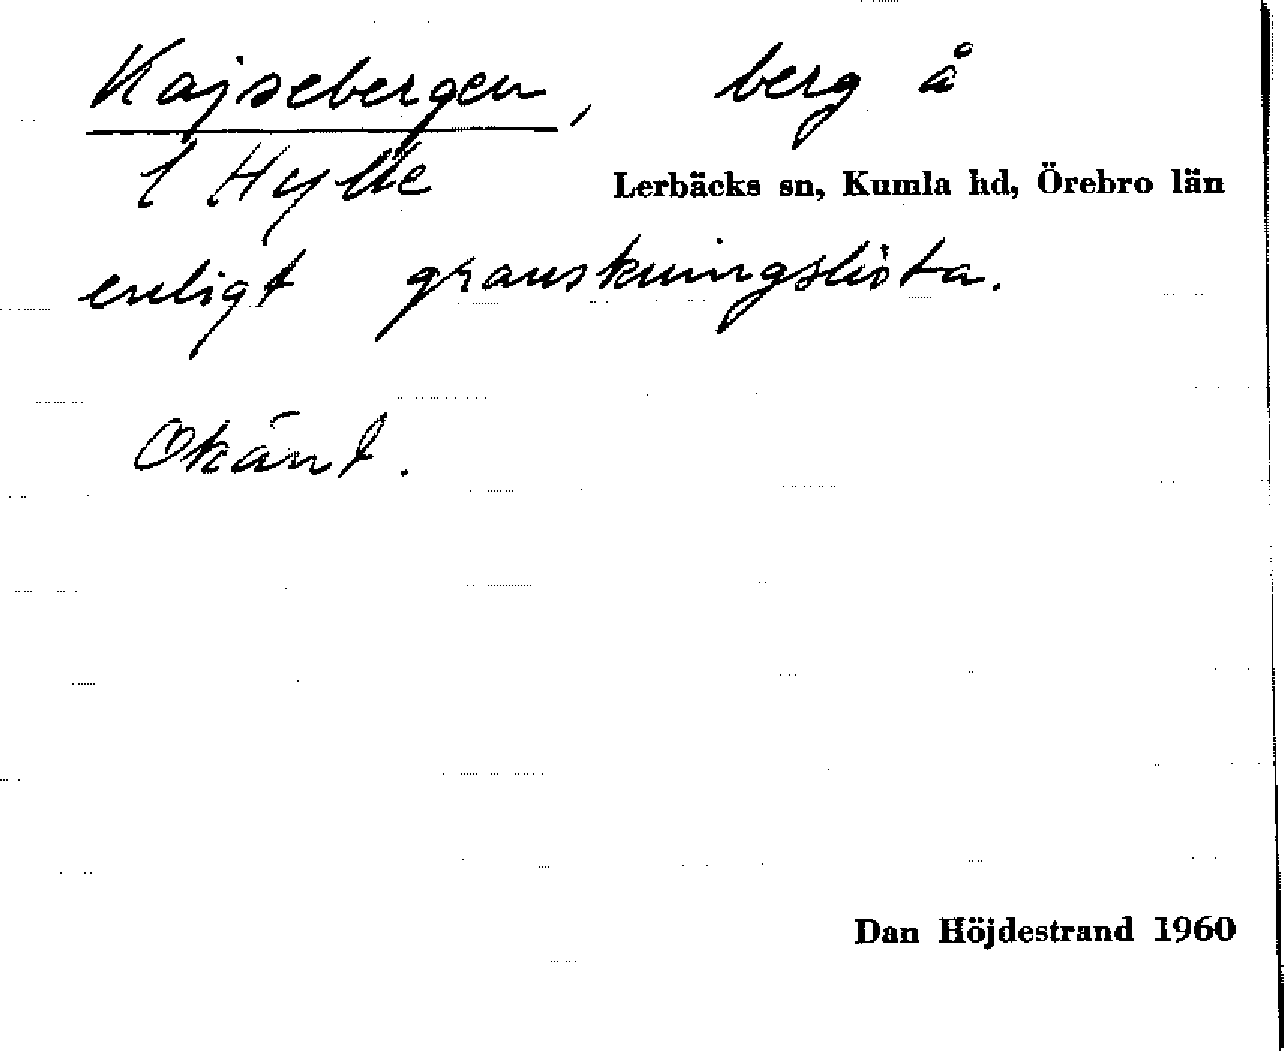 Kajsebergen, berg å
1 Hylle
Lerbäcks sn, Kumla hd, Örebro län
enligt granskningslista.
Okänt.
Dan Höjdestrand 1960